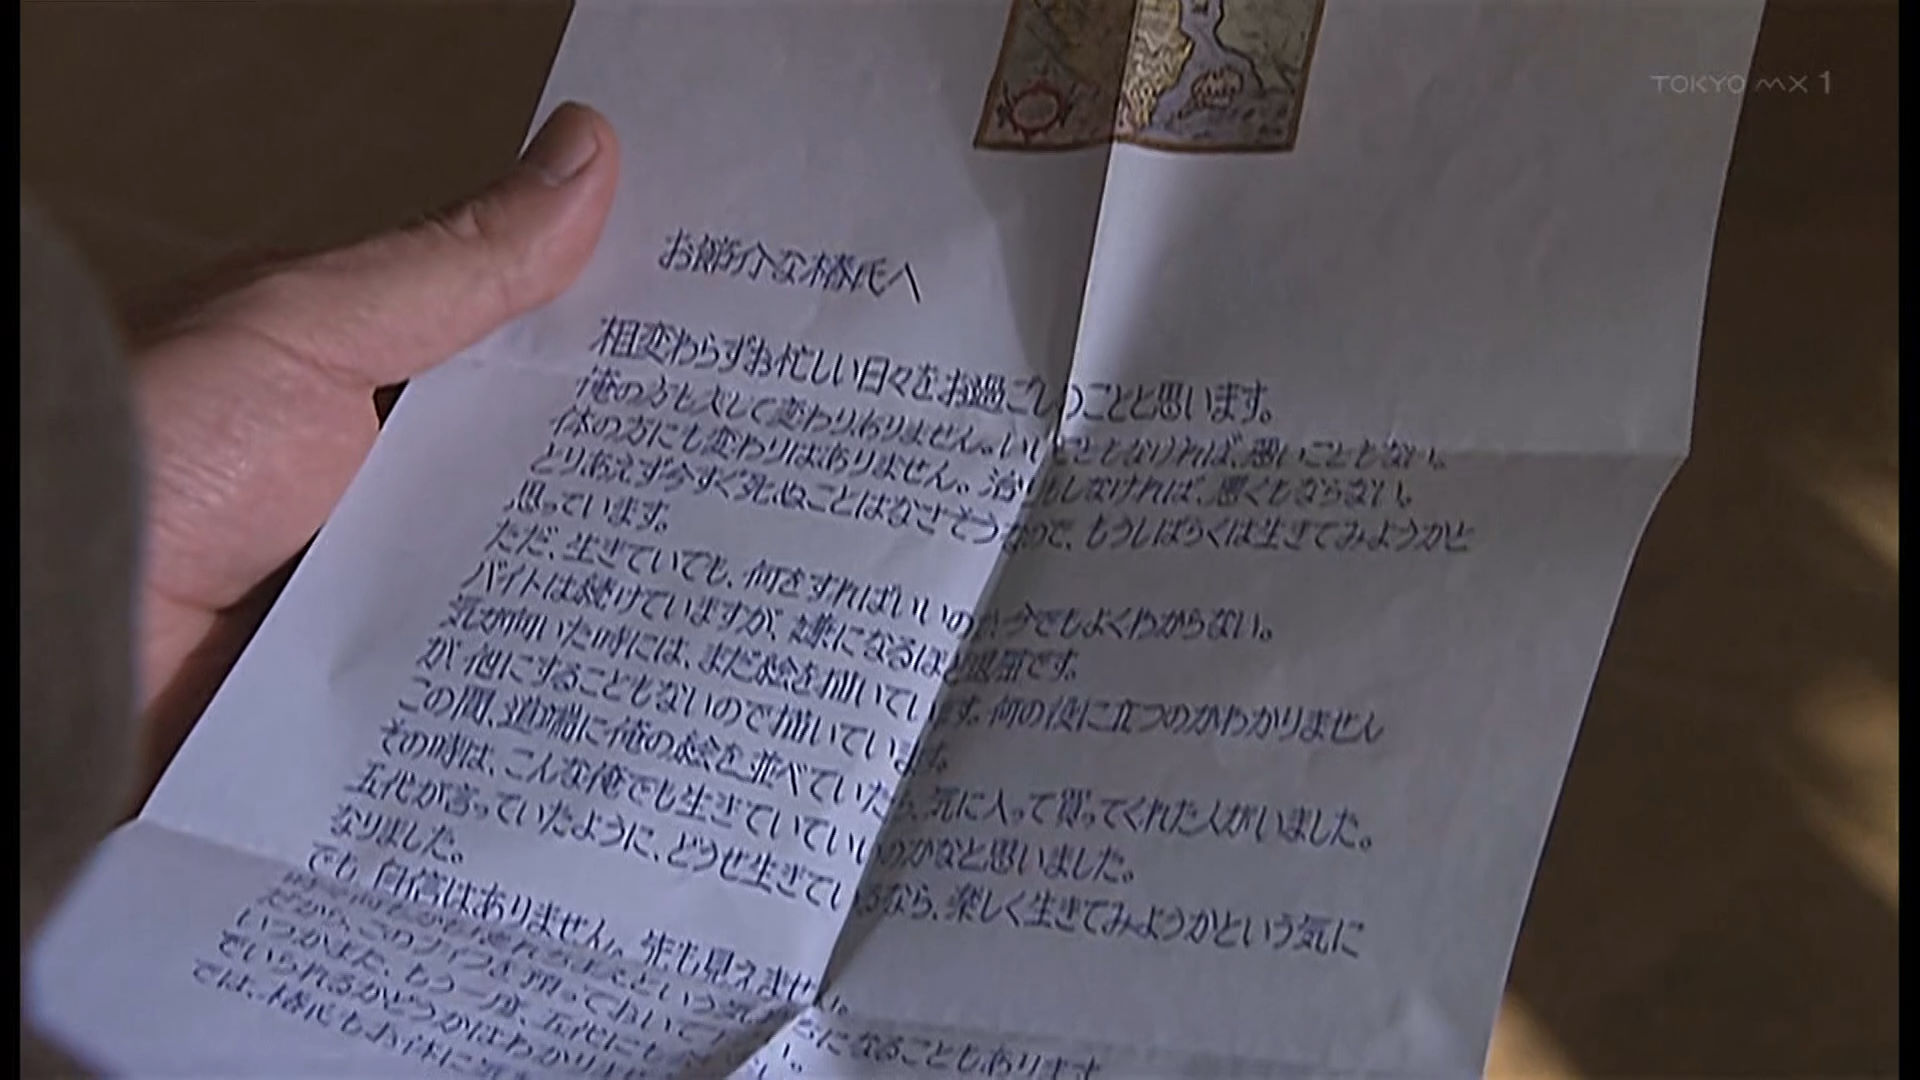 TOKYO MX 1
お節介な椿氏へ
相変わらずお忙しい日々をお過ごしのことと思います。
俺の方も大して変わりありません。いいこともなければ、悪いこともない。
体の方にも変わりはありません。治りもしなければ、悪くもならない。
とりあえず今すぐ死ぬことはなさそうなので、もうしばらくは生きてみようかと
思っています。
ただ、生きていても、何をすればいいのか今でもよくわからない。
バイトは続けていますが、嫌になるほど退屈です。
気が向いた時には、まだ絵を描いています。何の役に立つのかわかりません
が他にすることもないので描いています。
この間、道端に俺の絵を並べていたら、気に入って買ってくれた人がいました。
その時は、こんな俺でも生きていていいのかなと思いました。
五代が言っていたように、どうせ生きているなら、楽しく生きてみようかという気に
なりました。
でも、自信はありません。先も見えません。
という気になることもあります
だからこのナイフを預っておいて下
いつかまた、もう一度、五代にも
でいられるかどうかはわかり
では、椿氏もお体に気